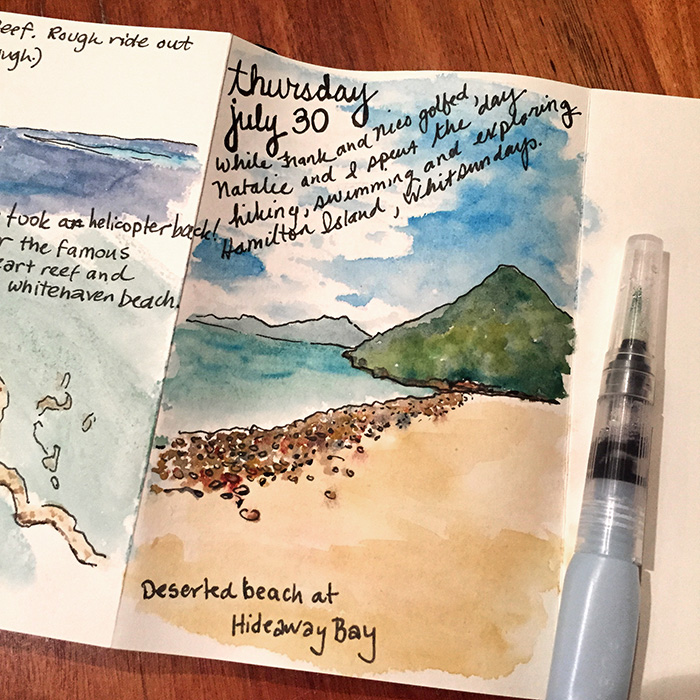 Reef. Rough ride out
ough.)
took an helicopter back!
r the famous
eart reef and
whitehaven beach.
thursday
july 30
While Frank and Nico golfed,
Natalie and I spent the day
hiking, swimming and exploring
Hamilton Island, Whitsundays.
Deserted beach at
Hideaway Bay